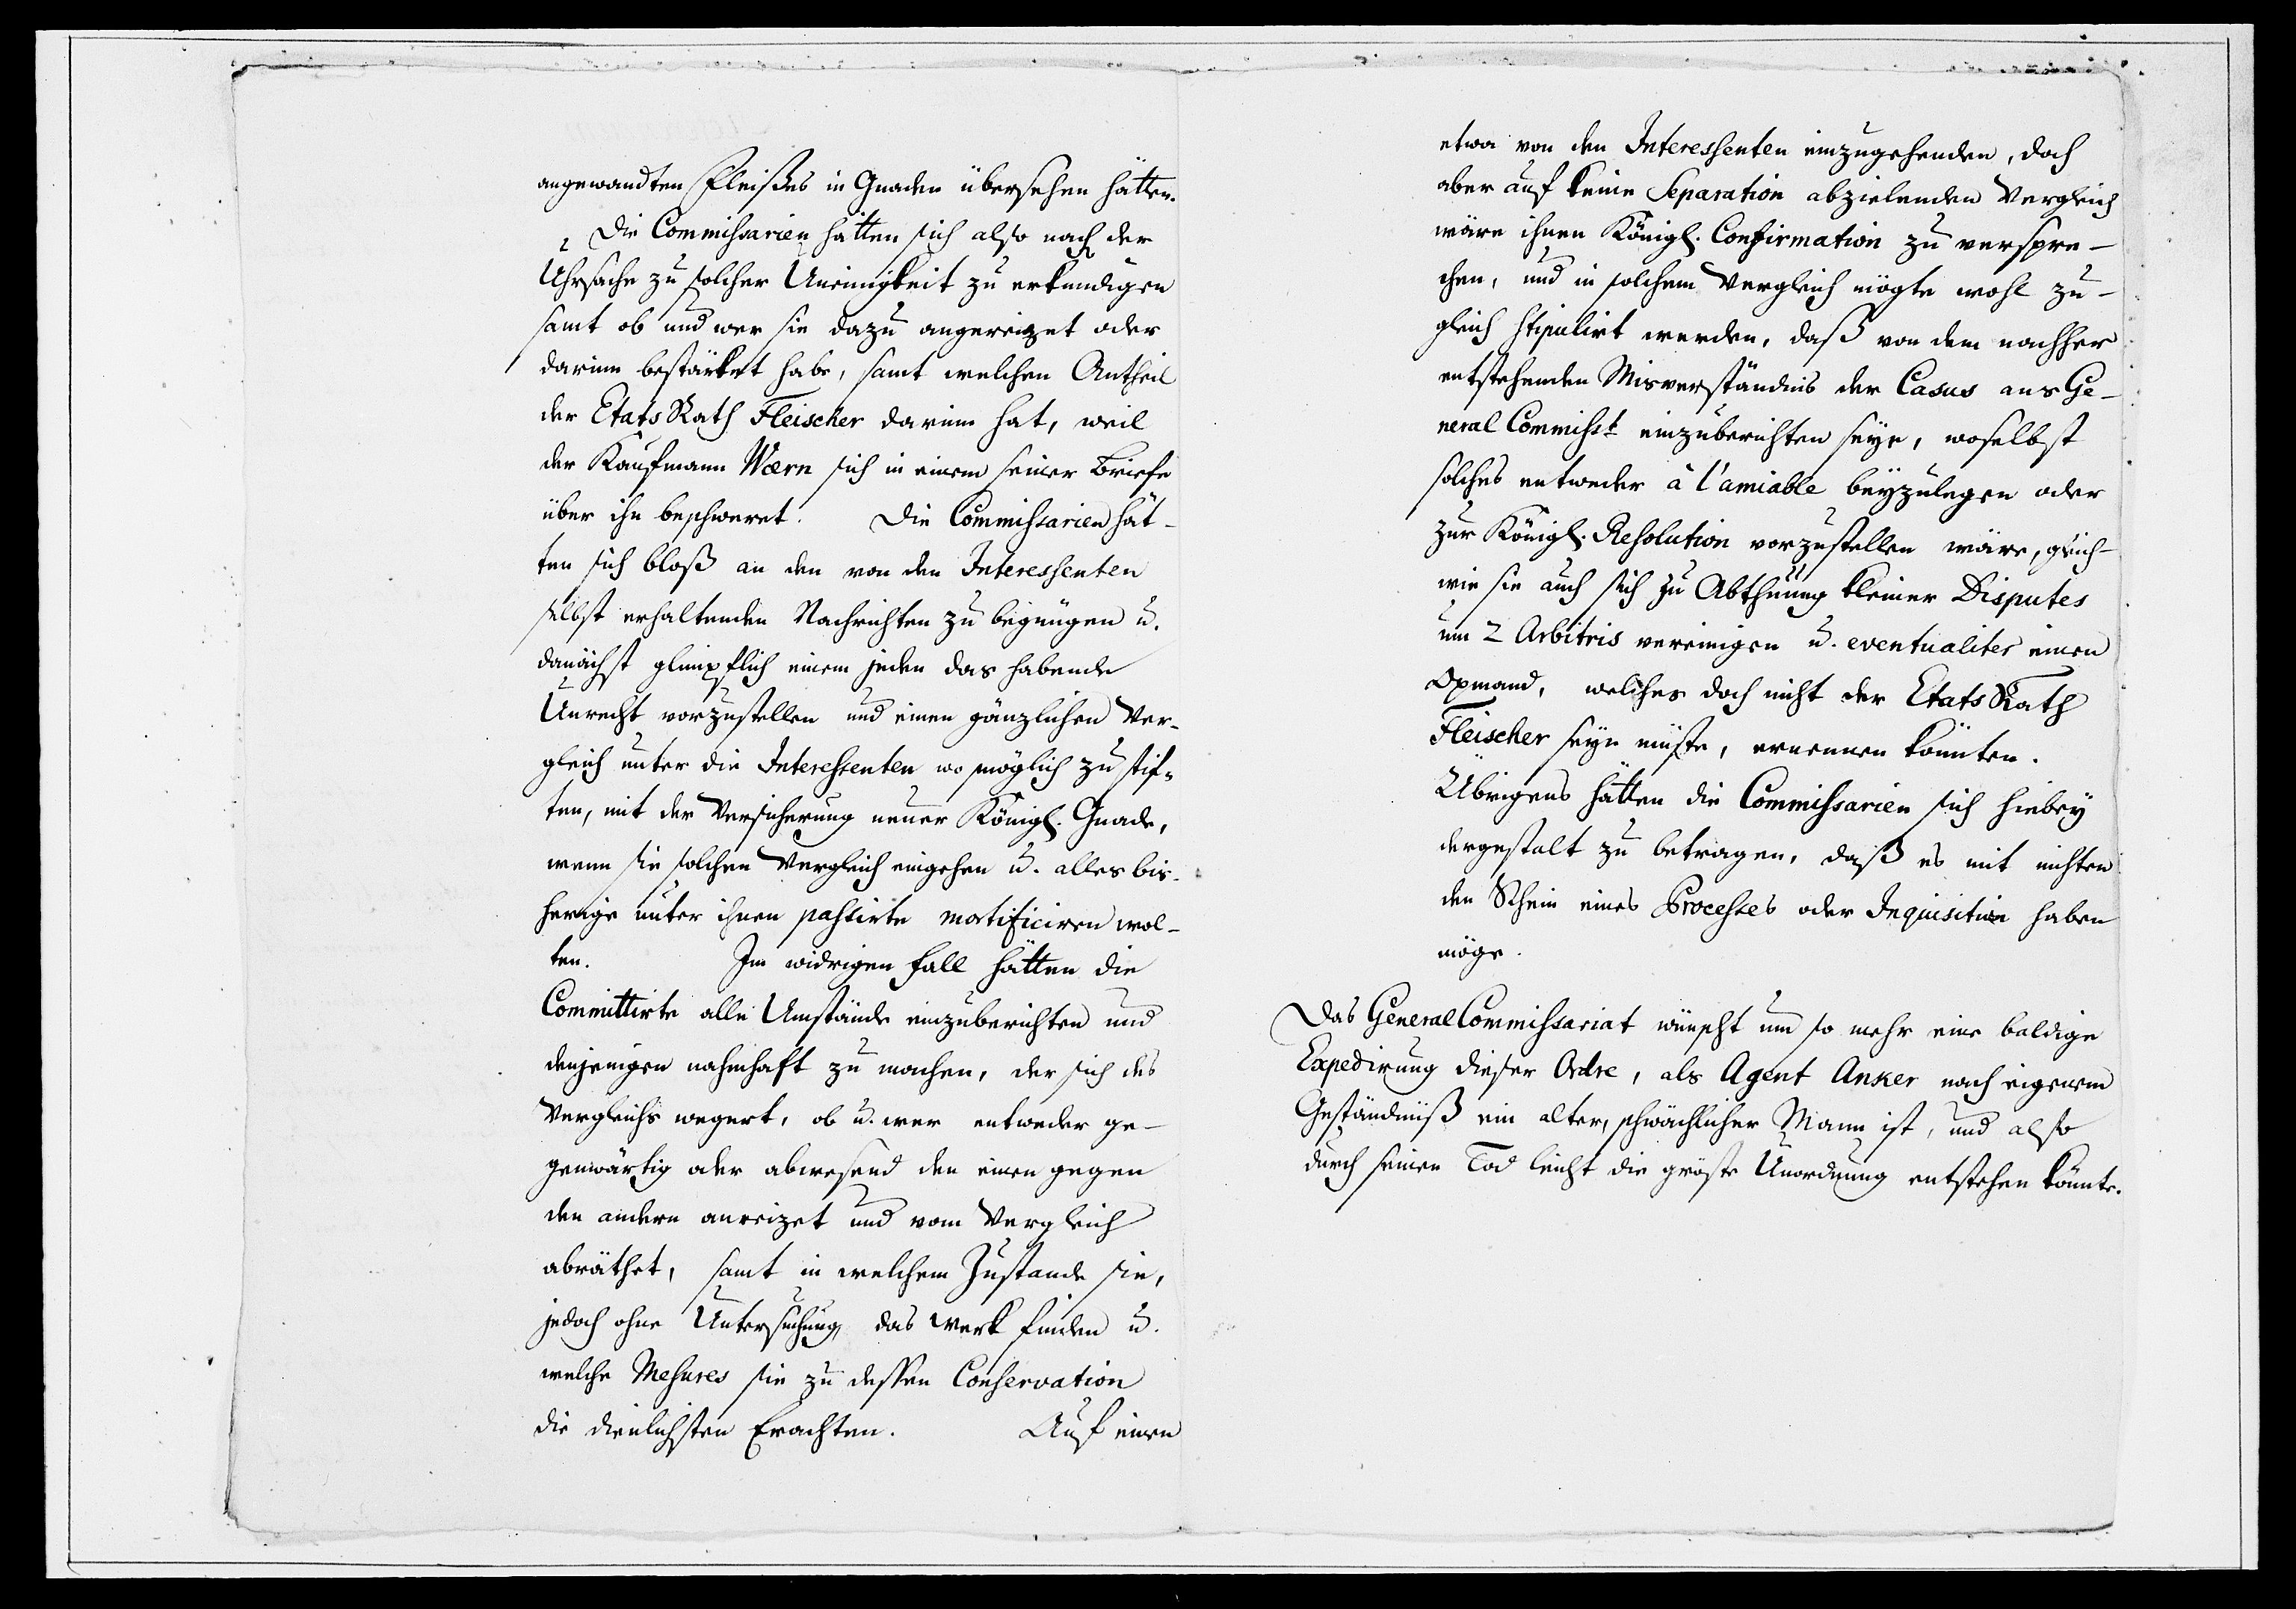 angewandten Fleißes in Gnaden übersehen hätten.
Die Commissarien hätten sich also nach der
Uhrsache zu solcher Uneinigkeit zu erkundigen
samt ob und wer sie dazu angereizet oder
darinn bestärket habe, samt welchen Antheil
der Etats Rath Fleischer darinn hat, weil
der Kaufmann Wærn sich in einem seiner Briefe
über ihn beschweret. Die Commissarien hät-
ten sich bloß an den von den Interessenten
selbst erhaltenden Nachrichten zu begnügen u.
danächst glimpflich einem jeden das habende
Unrecht vorzustellen und einen gänzlichen Ver-
gleich unter die Interessenten wo möglich zu stif-
ten, mit der Versicherung neuer Königl. Gnade,
wenn sie solchen Vergleich eingehen u. alles bis-
herige unter ihnen passirte mortificiren wol-
ten. Im widrigen Fall hätten die
Committirte alle Umstände einzuberichten und
denjenigen nahmhaft zu machen, der sich des
Vergleichs wegert, ob u. wer entweder ge-
genwärtig oder abwesend den einen gegen
den andern anreizet und vom Vergleich
abräthet, samt in welchem Zustande sie,
jedoch ohne Untersuchung, das Werk finden u.
welche Mesures sie zu dessen Conservation
die dienlichsten Erachten. Auf einen
etwa von den Interessenten einzugehenden, doch
aber auf keine Separation abzielenden Vergleich
wäre ihnen Königl. Confirmation zu verspre-
chen, und in solchem Vergleich mögte wohl zu-
gleich stipulirt werden, daß von dem nachher
entstehenden Misverständnis der Casus ans Ge-
neral Commisst. einzuberichten seye, woselbst
solches entweder à l'amiable beyzulegen oder
zur Königl. Resolution vorzustellen wäre, gleich-
wie sie auch sich zu Abthuung kleiner Disputes
um 2 Arbitris vereinigen u. eventualiter einen
Opmand, welcher doch nicht der Etats Rath
Fleischer seyn müste, ernennen könten.
Übrigens hätten die Commissarien sich hiebey
dergestalt zu betragen, daß es mit nichten
den Schein eines Processes oder Inquisition haben
möge.
Das GeneralCommissariat wünscht um so mehr eine baldige
Expedirung dieser Ordre, als Agent Anker nach eigenem
Geständniß ein alter, schwächlicher Mann ist, und also
durch seinen Tod leicht die gröste Unordnung entstehen könnte.